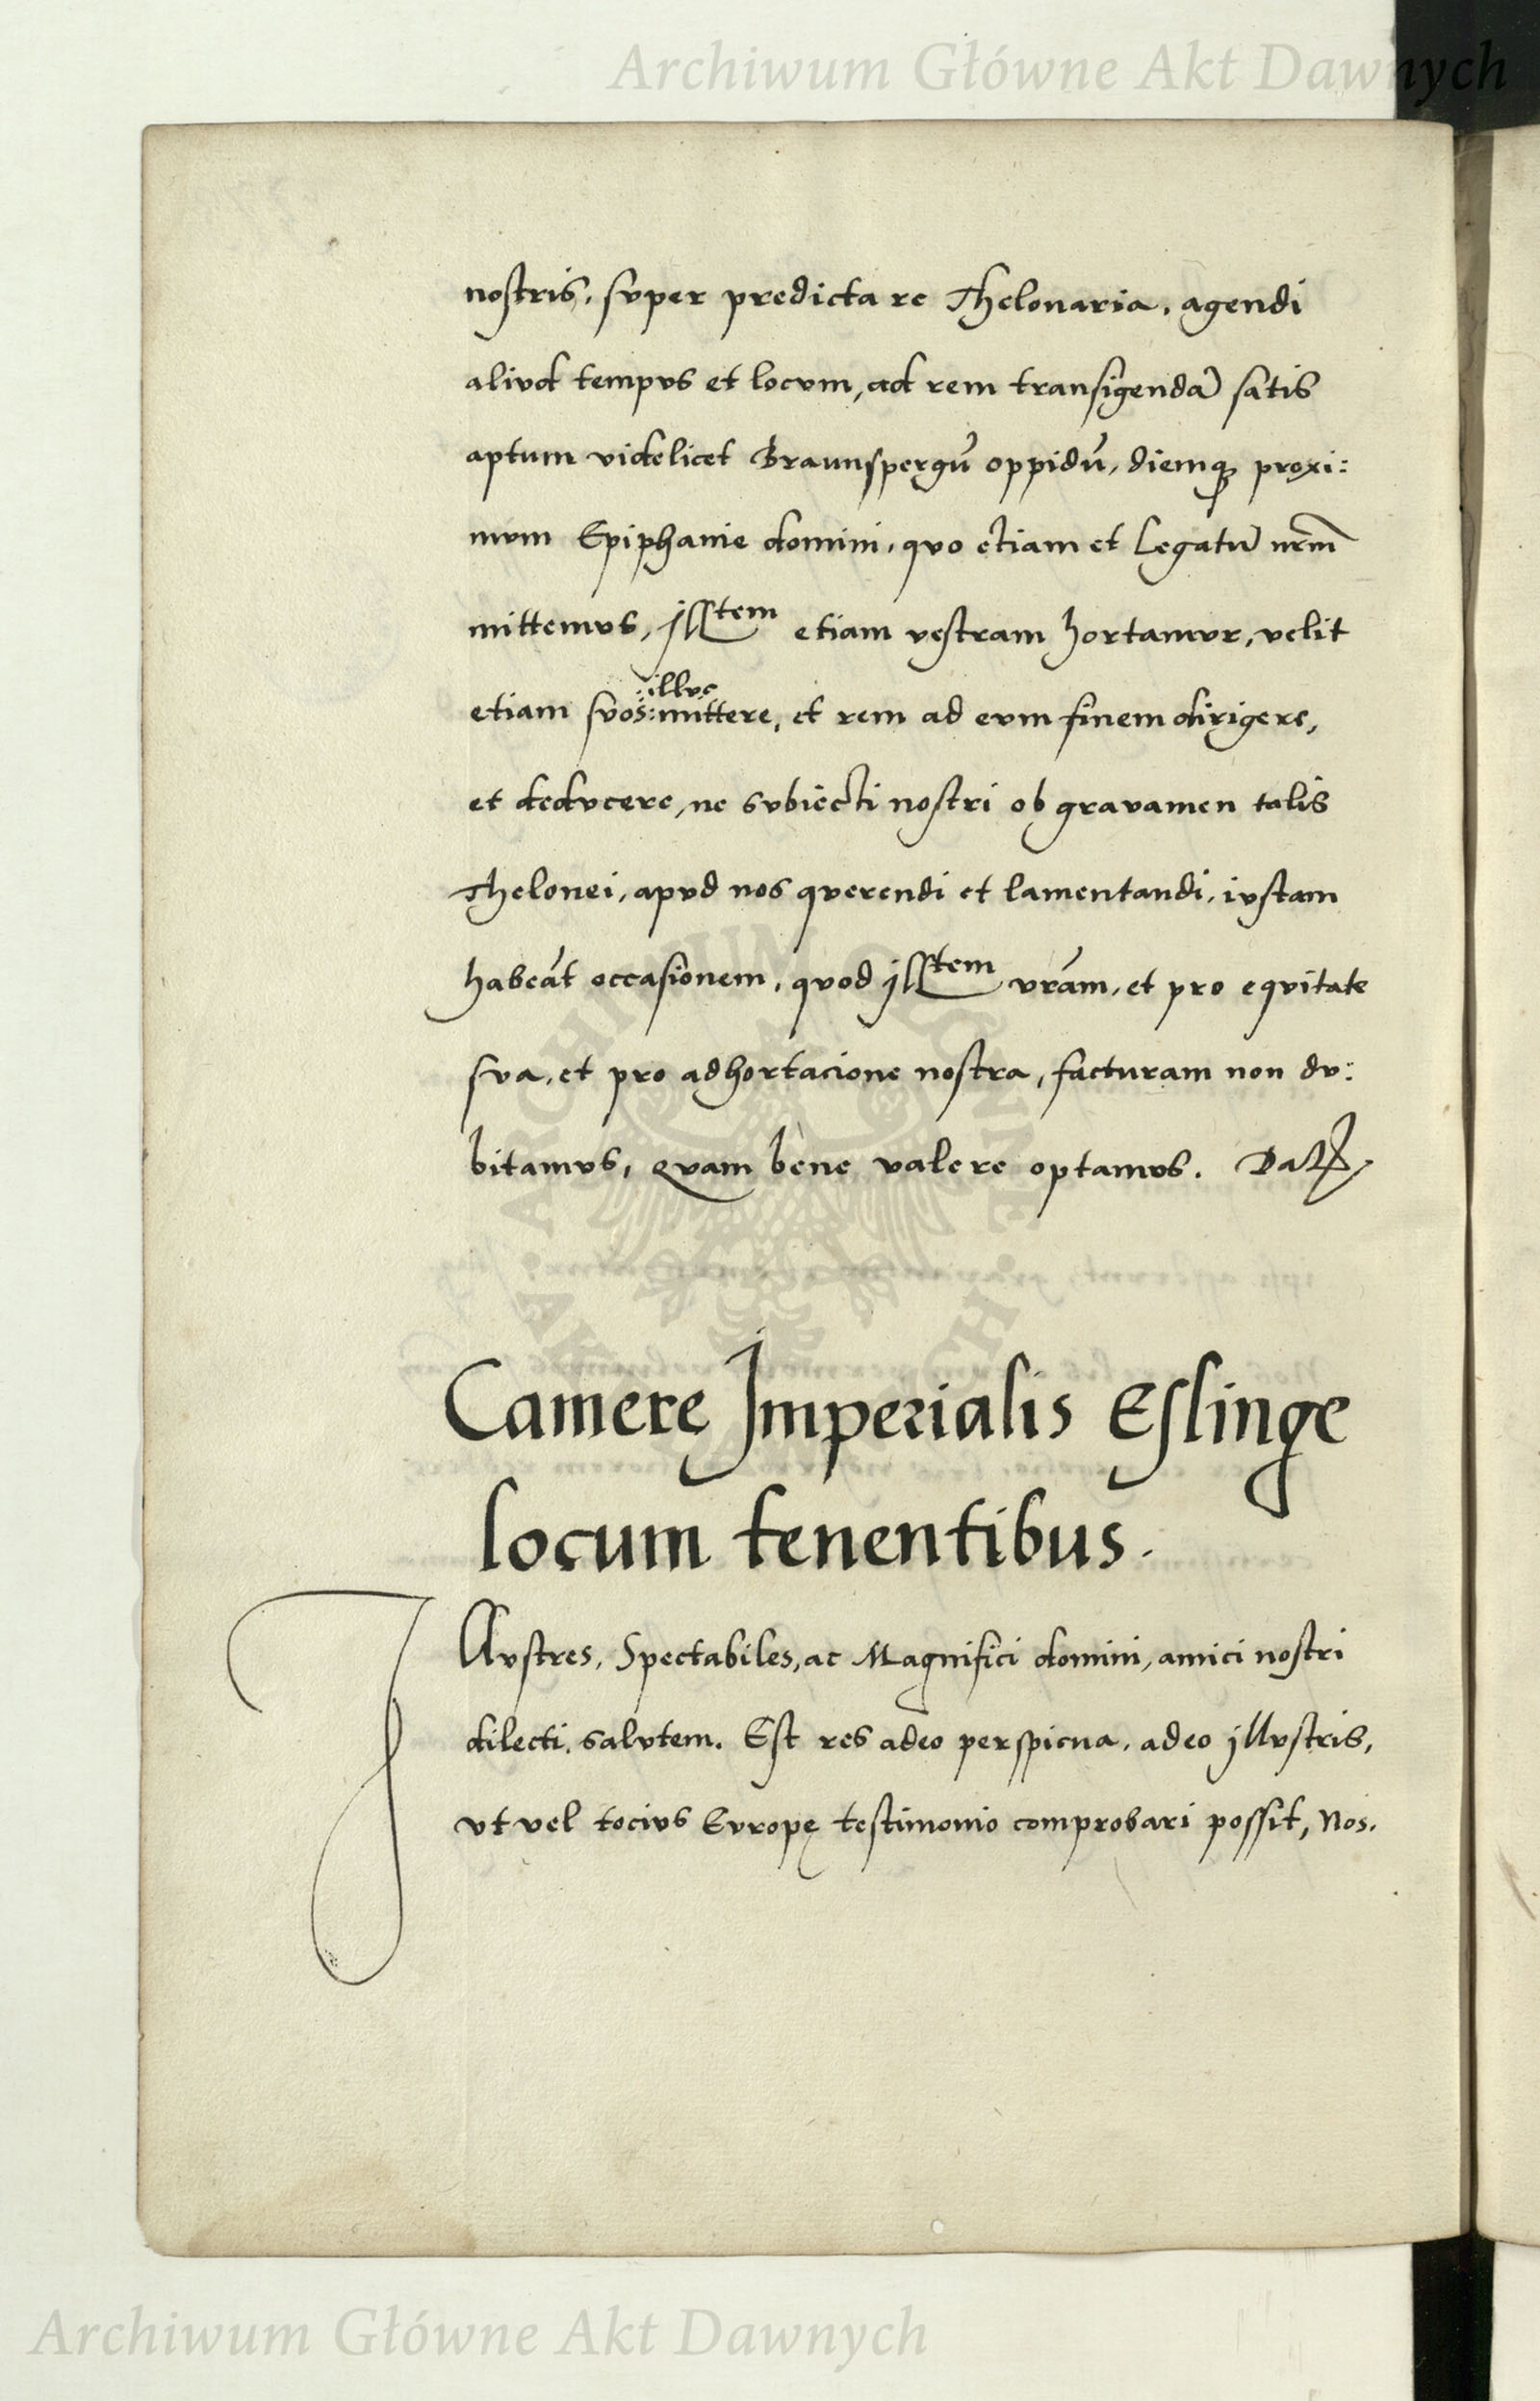 Archiwum Główne Akt Dawnych
nostris, svper predicta re Thelonaria, agendi
alivd tempvs et locvm, ad rem transigendā satis
aptum videlicet Braunspergū oppidū, diemqꝫ proxi:
mvm Epiphanie domini, qvo etiam et Legatū nrm̄
mittemvs, Illtem etiam vestram hortamvr, velit
etiam svos :illvc: mittere, et rem ad evm finem dirigere,
et dedvcere, ne svbiecti nostri ob gravamen talis
Thelonei, apvd nos qverendi et lamentandi, ivstam
habeāt occasionem, qvod Illtem vrām, et pro eqvitate
sva, et pro adhortacione nostra, facturam non dv:
bitamvs, Qvam bene valere optamvs. Datꝝ
Camerę Imperialis Eslinge
locum tenentibus.
Illvstres, Spectabiles, ac Magnifici domini, amici nostri
dilecti, salvtem. Est res adeo perspicua, adeo illvstris,
vt vel tocivs Evropę testimonio comprobari possit, Nos.
Archiwum Główne Akt Dawnych